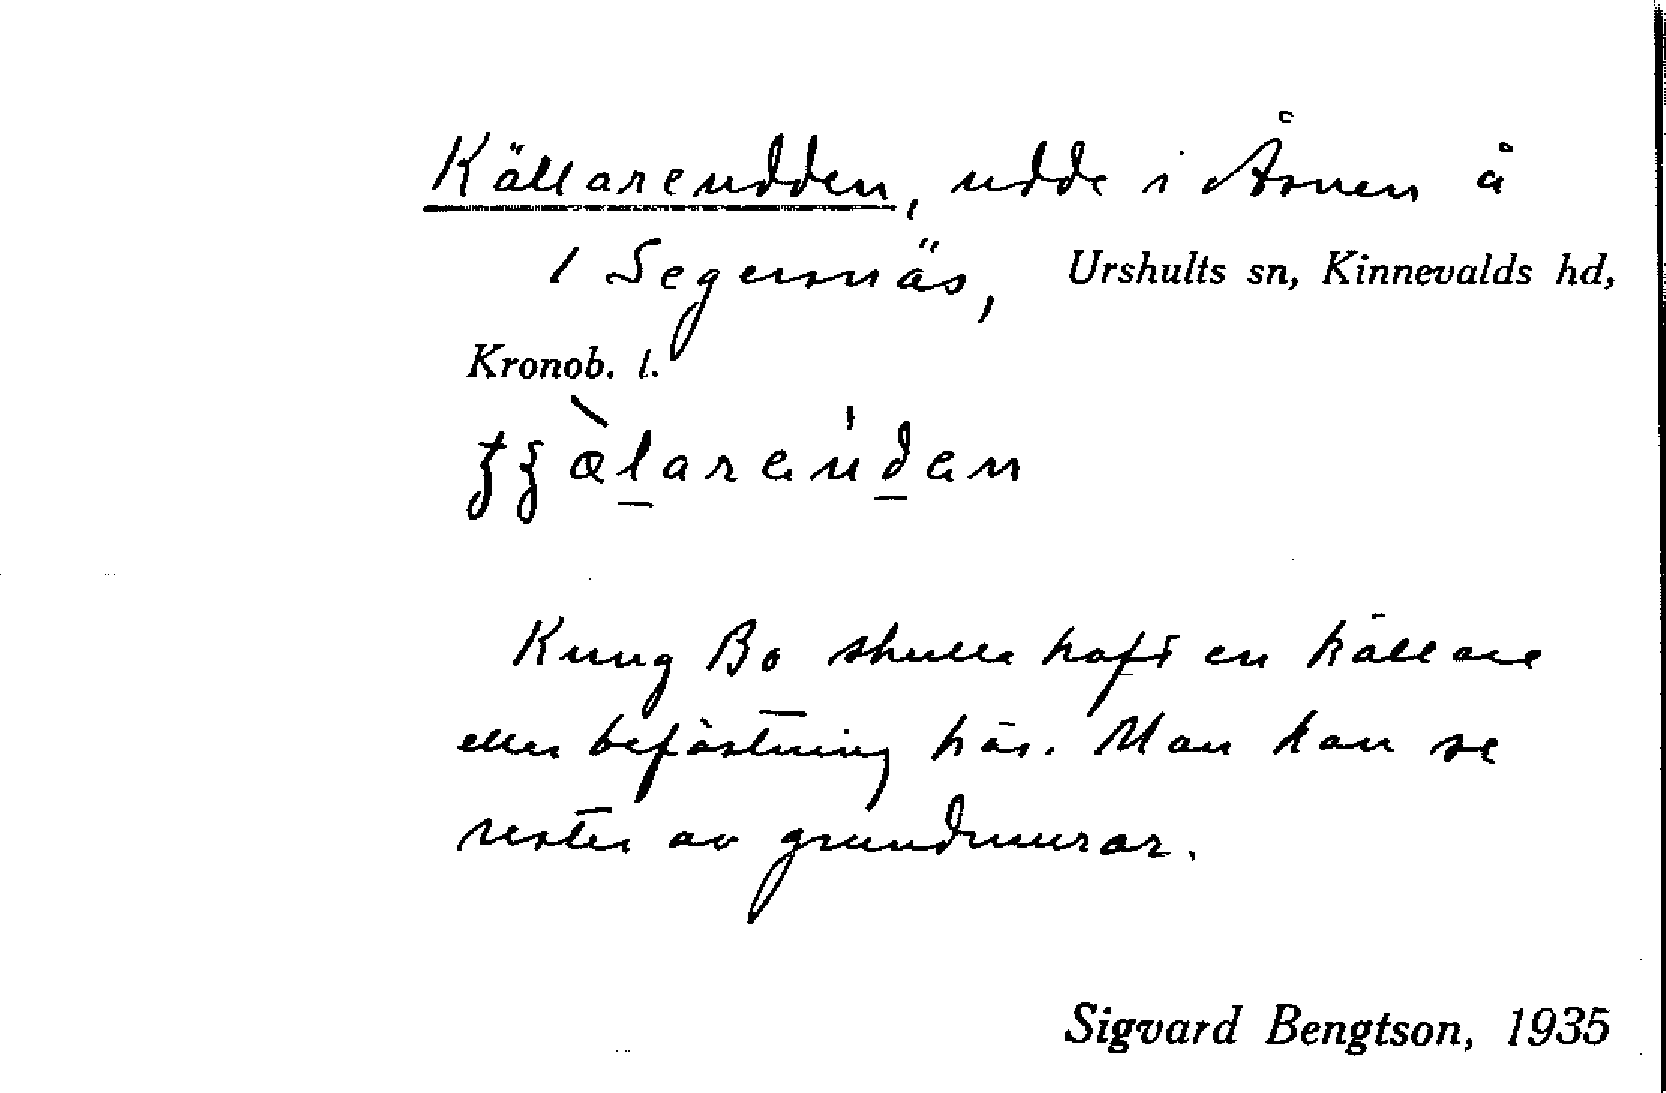 Källareudden, udde i Åsnen å
1 Segersnäs, Urshults sn, Kinnevalds hd,
Kronob. l.
Kung Bo skulle haft en källare
eller befästning här. Man kan se
rester av grundmurar.
Sigvard Bengtson, 1935